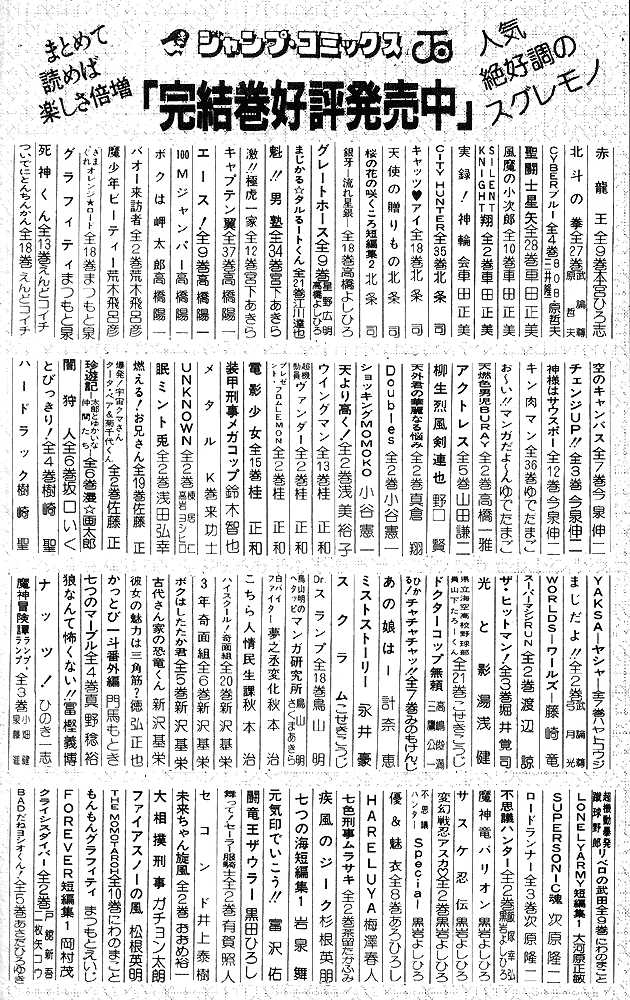 まとめて
読めば
楽しさ倍増
ジャンプ・コミックス
人気
絶好調の
スグレモノ
「完結巻好評発売中」
赤龍王 全9巻 本宮ひろ志
北斗の拳 全27巻 武論尊 原哲夫
CYBERブルー 全4巻 BOB 三井隆一 原哲夫
聖闘士星矢 全28巻 車田正美
風魔の小次郎 全10巻 車田正美
SILENT KNIGHT翔 全2巻 車田正美
実録!神輪会 車田正美
CITY HUNTER 全35巻 北条司
キャッツ♥アイ 全18巻 北条司
天使の贈りもの 北条司
桜の花の咲くころ 短編集2 北条司
銀牙―流れ星 銀― 全18巻 高橋よしひろ
グレートホース 全9巻 星野広明 高橋よしひろ
まじかる☆タルるートくん 全21巻 江川達也
魁!!男塾 全34巻 宮下あきら
激!!極虎一家 全12巻 宮下あきら
キャプテン翼 全37巻 高橋陽一
エース! 全9巻 高橋陽一
100Mジャンパー 高橋陽一
ボクは岬太郎 高橋陽一
バオー来訪者 全2巻 荒木飛呂彦
魔少年ビーティー 荒木飛呂彦
きまぐれオレンジ★ロード 全18巻 まつもと泉
グラフィティ まつもと泉
死神くん 全13巻 えんどコイチ
ついでにとんちんかん 全18巻 えんどコイチ
空のキャンバス 全7巻 今泉伸二
チェンジUP!! 全3巻 今泉伸二
神様はサウスポー 全12巻 今泉伸二
キン肉マン 全36巻 ゆでたまご
お〜い!マンガだよ〜ん ゆでたまご
天燃色男児BURAY 全2巻 高橋一雅
アクトレス 全5巻 山田謙二
柳生烈風剣連也 野口賢
天外君の華麗なる悩み 全2巻 真倉翔
Doubles 全2巻 小谷憲一
ショッキングMOMOKO 小谷憲一
天より高く! 全2巻 浅美裕子
ウイングマン 全13巻 桂正和
超機動員ヴァンダー 全2巻 桂正和
プレゼント・フロムLEMON 全2巻 桂正和
電影少女 全15巻 桂正和
装甲刑事メガコップ 鈴木智也
メタルK 巻来功士
UNKNOWN 全2巻 棟居仁 高岩ヨシヒロ
眠兎 全2巻 浅田弘幸
燃える!お兄さん 全19巻 佐藤正
爆発!宇宙クマさん クータ・ベア&菊千代くん 全2巻 佐藤正
珍遊記 太郎とゆかいな仲間たち 全6巻 漫☆画太郎
闇狩人 全6巻 坂口いく
とびっきり! 全4巻 樹崎聖
ハードラック 樹崎聖
YAKSA―ヤシャ― 全7巻 ハヤトコウジ
まじだよ!! 全2巻 武論尊 弓月光
WORLDS―ワールズ― 藤崎竜
スーパーマンRUN 全2巻 渡辺諒
ザ・ヒットマン! 全3巻 堀井覚司
光と影 湯浅健
県立海空高校野球部員山下たろーくん 全21巻 こせきこうじ
ドクターコップ無頼 高嶋俊満 三鷹公一
ひかる!チャチャチャッ!! 全7巻 みのもけんじ
あの娘は― 計奈恵
ミストストーリー 永井豪
スクラム こせきこうじ
Dr.スランプ 全18巻 鳥山明
鳥山明のヘタッピマンガ研究所 鳥山明 さくまあきら
白バイファイター夢之丞変化 秋本治
こちら人情民生課 秋本治
ハイスクール!奇面組 全20巻 新沢基栄
3年奇面組 全6巻 新沢基栄
ボクはしたたか君 全5巻 新沢基栄
古代さん家の恐竜くん 新沢基栄
彼女の魅力は三角筋? 徳弘正也
かっとび一斗番外編 門馬もとき
七つのマーブル 全4巻 真野稔裕
狼なんて怖くない!! 富樫義博
ナッツ! ひのき一志
魔神冒険譚ランプ・ランプ 全3巻 小畑健 泉藤進
超機動暴発蹴球野郎リベロの武田 全9巻 にわのまこと
LONELYARMY 短編集1 大河原正敏
SUPERSONIC魂 次原隆二
ロードランナー 全3巻 次原隆二
不思議ハンター 全2巻 飯塚幸弘 黒岩よしひろ
魔神竜バリオン 黒岩よしひろ
サスケ忍伝 黒岩よしひろ
変幻戦忍アスカ 全2巻 黒岩よしひろ
不思議ハンターSpecial 黒岩よしひろ
優&魅衣 全8巻 あろひろし
HARELUYA 梅澤春人
七色刑事ムラサキ 全2巻 蒸留たかふみ
疾風のジーク 杉根英明
七つの海 短編集1 岩泉舞
元気印でいこう!! 富沢佑
闘竜王ザウラー 黒田ひろし
舞って!セーラー服騎士 全2巻 有賀照人
セコンド 井上泰樹
未来ちゃん旋風 全2巻 おおめ裕一
大相撲刑事 ガチョン太朗
ファイアスノーの風 松根英明
THE MOMOTAROH 全10巻 にわのまこと
もんもんグラフィティ まつもとえいじ
FOREVER 短編集1 岡村茂
クライシスダイバー 全2巻 戸舘新吾 二枚矢コウ
BADだねヨシオくん! 全5巻 あさだひろゆき